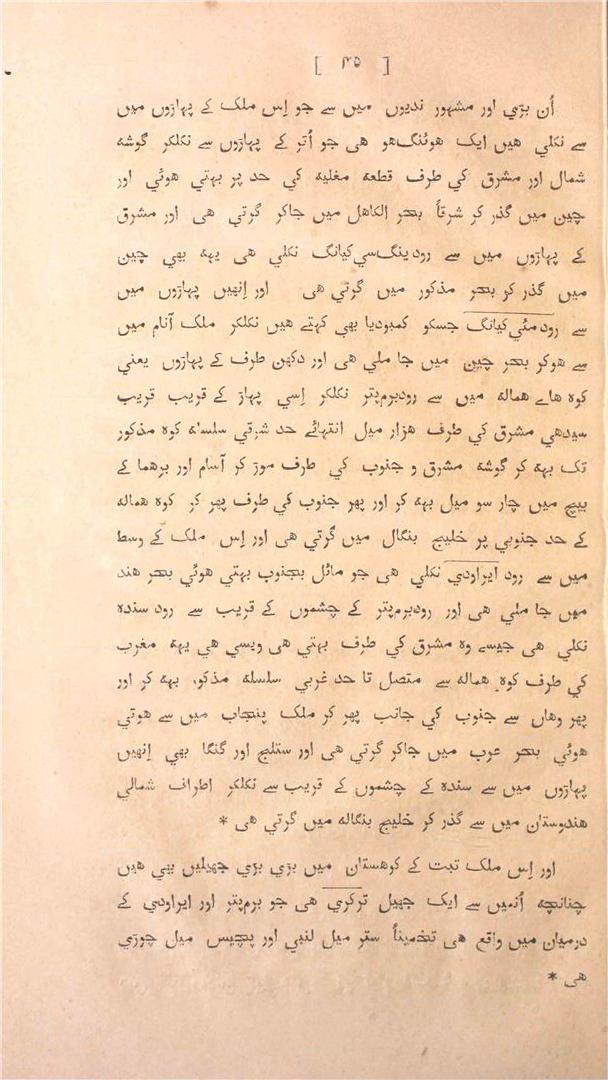 [ ۳۵ ]
اُن بڑي اور مشہور ندیوں میں سے جو اِس ملک کے پہاڑوں میں
سے نکلي هیں ایک هوئنگ‌هو هی جو اُتر کے پہاڑوں سے نکلکر گوشہ
شمال اور مشرق کي طرف قطعہ مغلیہ کي حد پر بہتي هوئي اور
چین میں گذر کر شرقاً بحر الکاهل میں جاکر گرتي هی اور مشرق
کے پہاڑوں میں سے رودینگ‌سي‌کیانگ نکلي هی یہہ بهي چین
میں گذر کر بحر مذکور میں گرتي هی اور اِنهیں پہاڑوں میں
سے رودمئي‌کیانگ جسکو کمبودیا بهي کہتے هیں نکلکر ملک آنام میں
سے هوکر بحر چین میں جا ملي هی اور دکهن طرف کے پہاڑوں یعني
کوہ هاے همالہ میں سے رودبرم‌پتر نکلکر اِسي پہاڑ کے قریب قریب
سیدهي مشرق کي طرف هزار میل انتہائے حد شرقي سلسلہ کوہ مذکور
تک بہہ کر گوشہ مشرق و جنوب کي طرف موڑ کر آسام اور برهما کے
بیچ میں چار سو میل بہہ کر اور پهر جنوب کي طرف پهر کر کوہ همالہ
کے حد جنوبي پر خلیج بنگال میں گرتي هی اور اِس ملک کے وسط
میں سے رود ایراودي نکلي هی جو مائل بجنوب بہتي هوئي بحر هند
میں جا ملي هی اور رودبرم‌پتر کے چشموں کے قریب سے رود سندہ
نکلي هی جیسے وہ مشرق کي طرف بہتي هی ویسي هي یہہ مغرب
کي طرف کوہ همالہ سے متصل تا حد غربي سلسلہ مذکور بہہ کر اور
پهر وهاں سے جنوب کي جانب پهر کر ملک پنجاب میں سے هوتي
هوئي بحر عرب میں جاکر گرتي هی اور ستلج اور گنگا بهي اِنهیں
پہاڑوں میں سے سندہ کے چشموں کے قریب سے نکلکر اطراف شمالي
هندوستان میں سے گذر کر خلیج بنگالہ میں گرتي هی *
اور اِس ملک تبت کے کوهستان میں بڑي بڑي جهیلیں بهي هیں
چنانچہ اُنمیں سے ایک جهیل ترکري هی جو برم‌پتر اور ایراودي کے
درمیان میں واقع هی تخمیناً ستر میل لنبي اور پچیس میل چوڑي
هی *